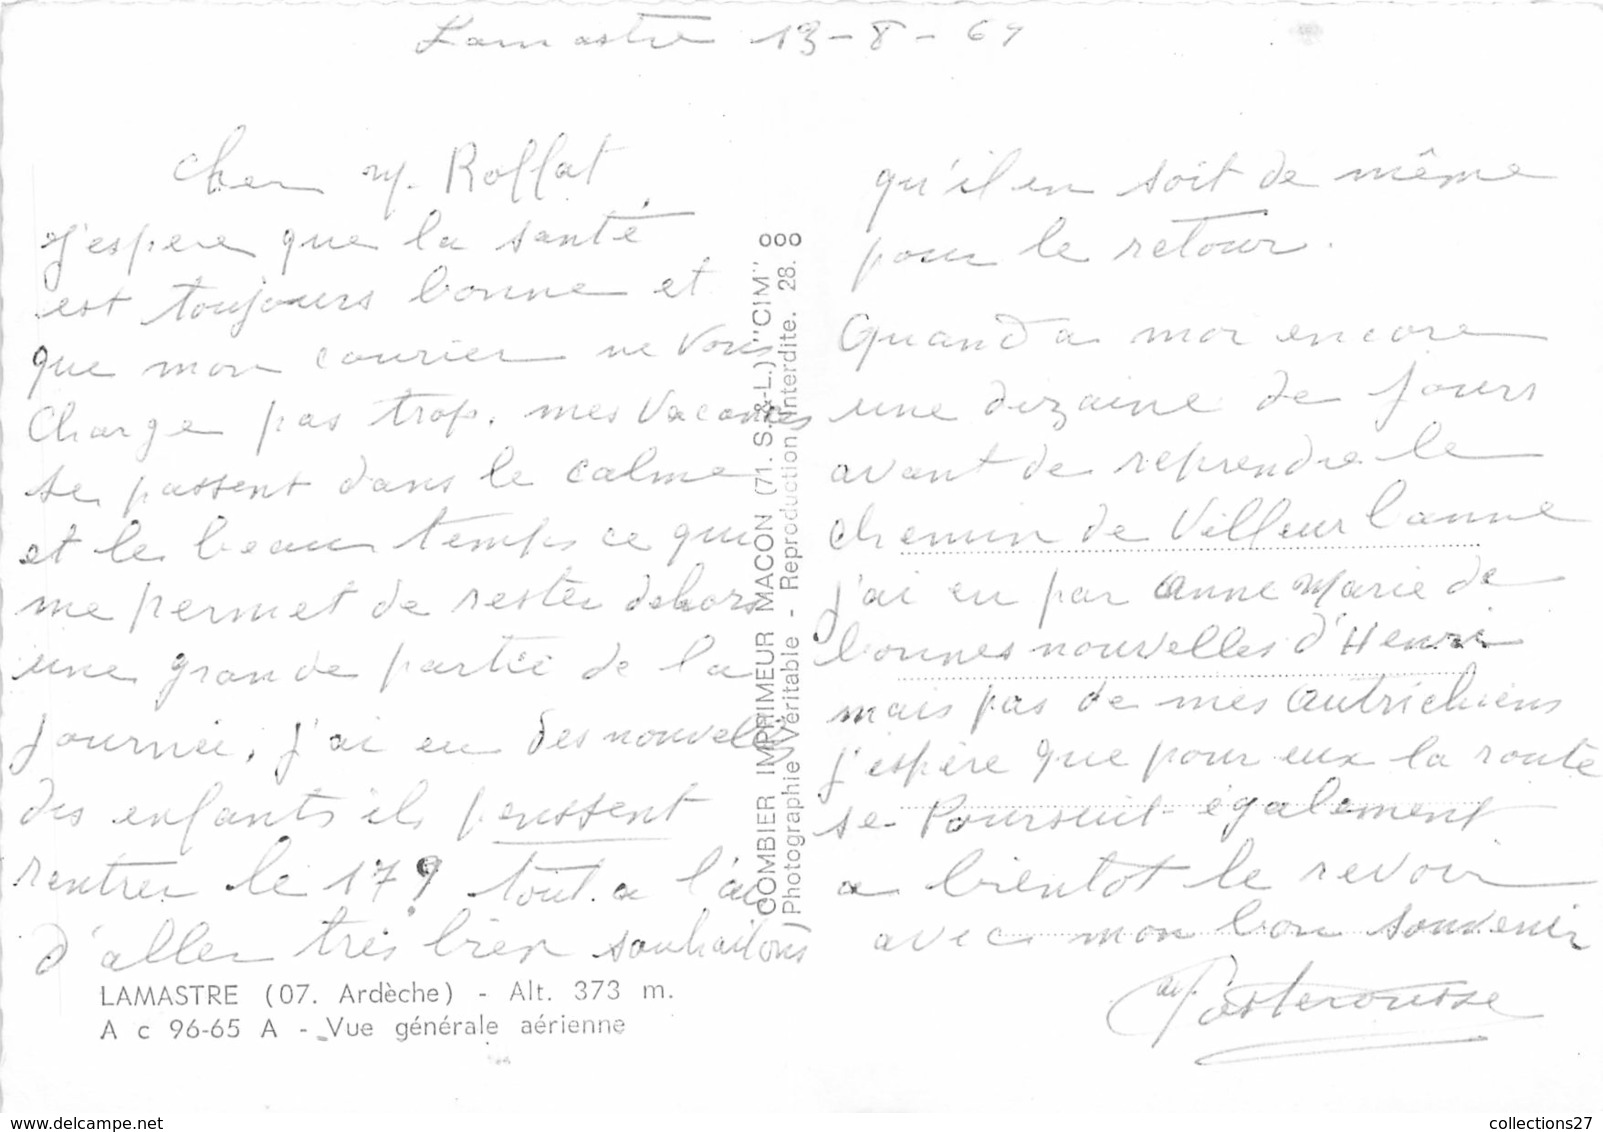 Lamastre 13-8-69
Cher M. Roffat
j'espere que la santé
est toujours bonne et
que mon courier ne vous
charge pas trop. mes vacances
se passent dans le calme
et le beau temps ce qui
me permet de rester dehors
une grande partie de la
journée, j'ai eu des nouvelles
des enfants ils penssent
rentrer le 17 tout a l'air
d'aller très bien souhaitons
LAMASTRE (07. Ardèche) - Alt. 373 m.
A c 96-65 A - Vue générale aérienne
COMBIER IMPRIMEUR MACON (71. S.-&-L.) "CIM"
Photographie Véritable - Reproduction Interdite. 28.
qu'il en soit de même
pour le retour.
Quand a moi encore
une dizaine de jours
avant de reprendre le
chemin de Villeurbanne
j'ai eu par Anne Marie de
bonnes nouvelles d'Henri
mais pas de mes autrichiens
j'espère que pour eux la route
se poursuit également
a bientot le revoir
avec mon bon souvenir
collections27